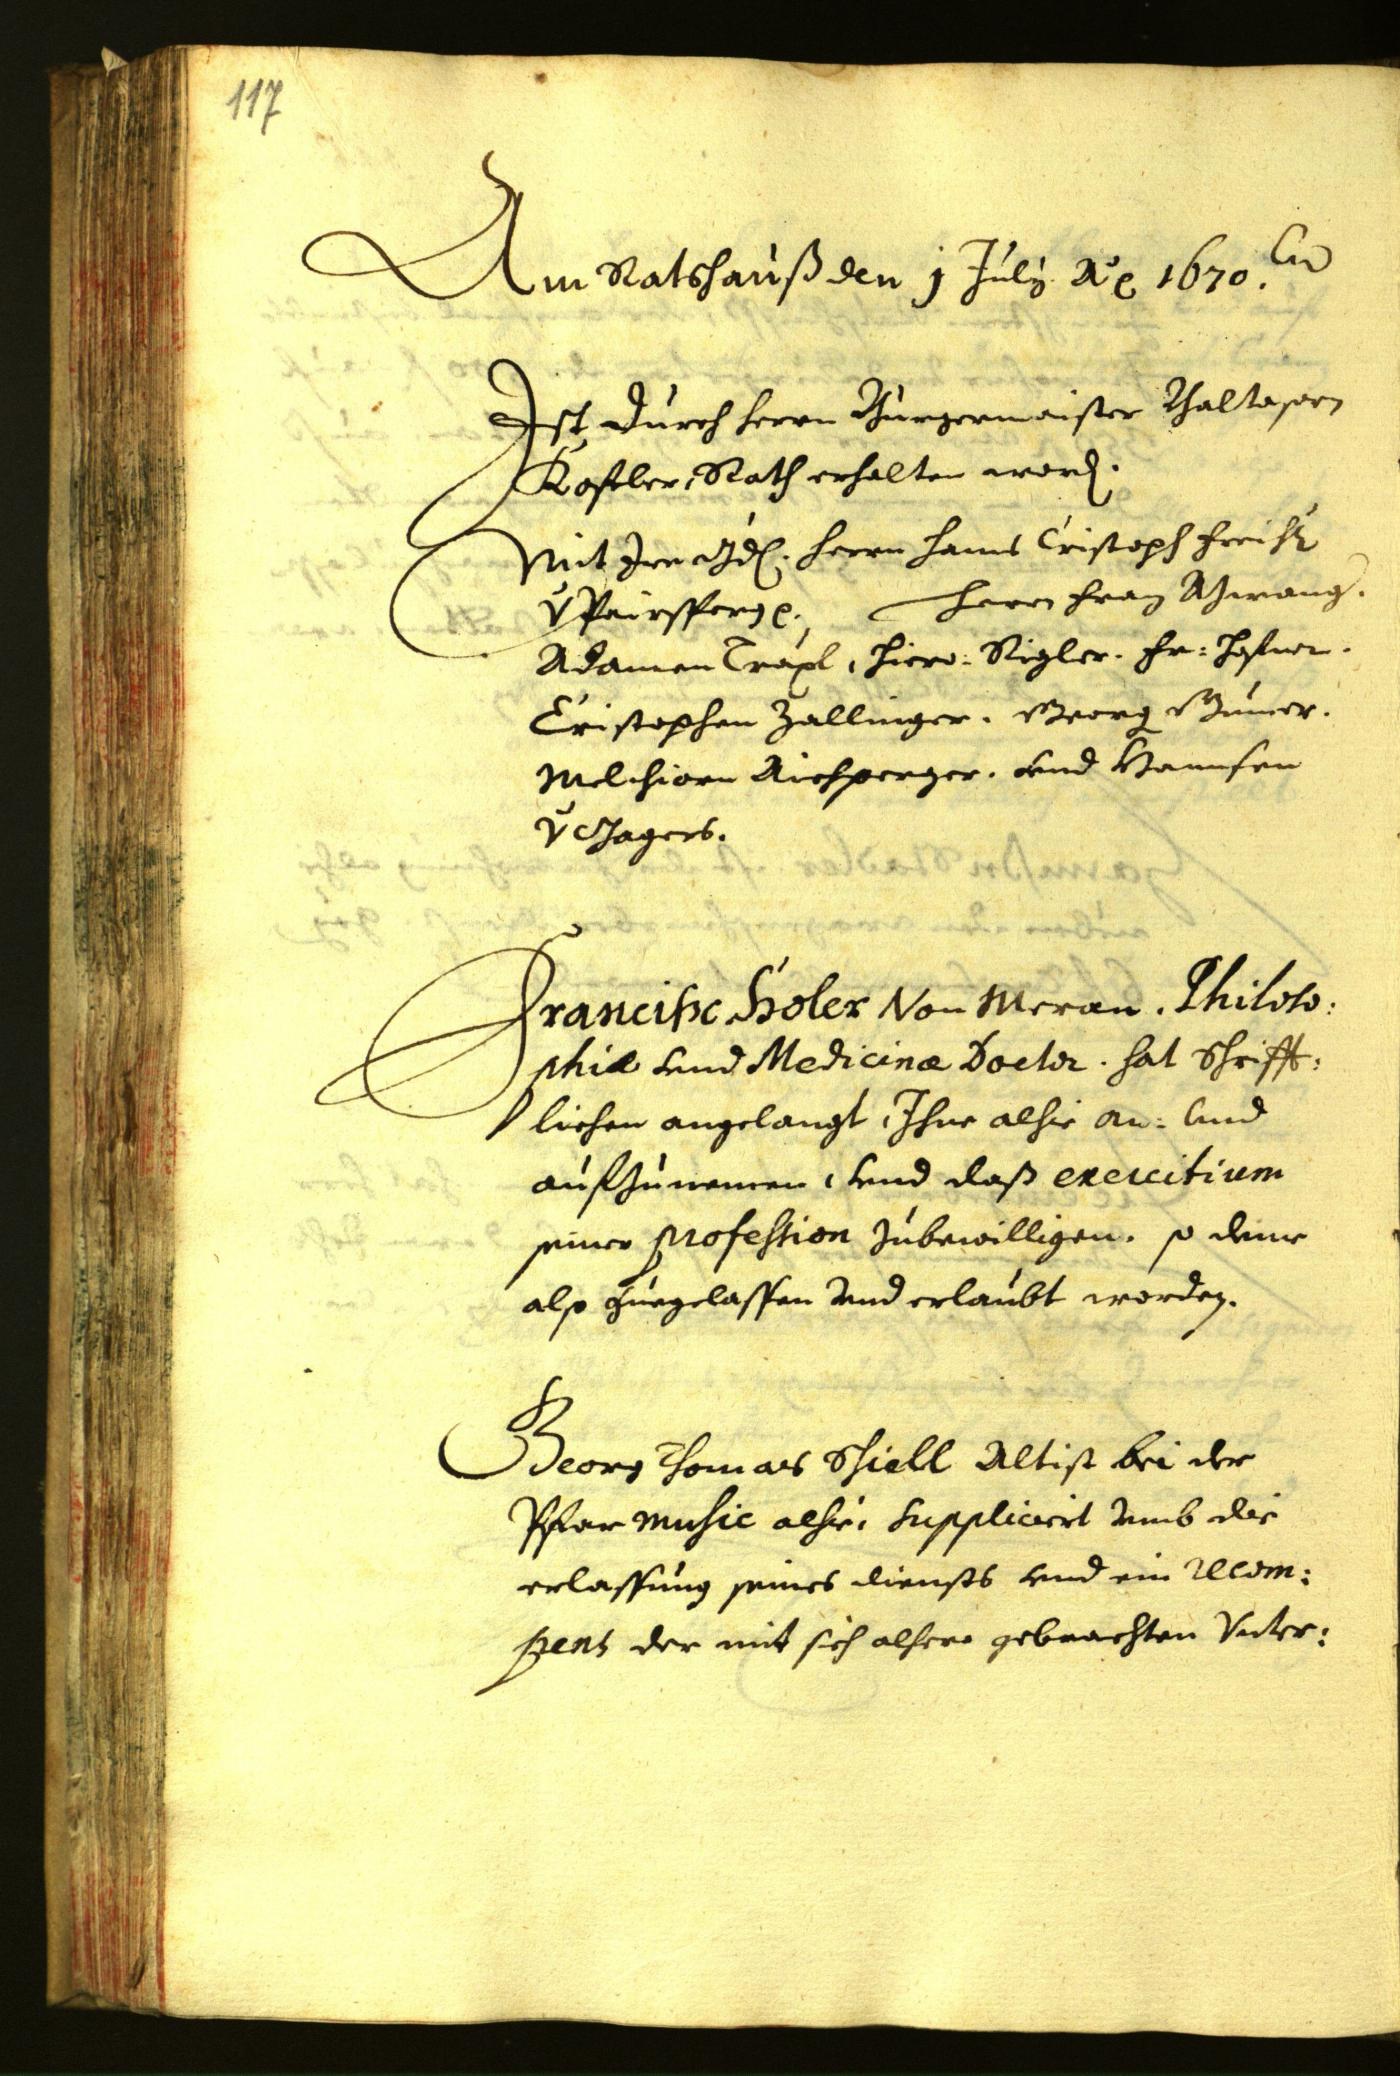 117
Am Ratshauß den j July Aõ 1670.
Ist durch herrn Burgermaister Balthasarn
Kostler, Rath erhalten word.
Mit Irr Gd. herrn Hanns Cristoph freihr
V Pairsperg herrn Franz
Adamen Träpl, Hiero: Rigler. Fr: Hafner.
Cristophen Zallinger. Georg
Melchiorn Aichperger. Vnd Hannsen
V Jagers.
Francisc Holer Von Meran. Philoso:
phiæ Vnd Medicinæ Doctor. hat Schrifft:
lichen angelangt, Ihne alhie an: Vnd
aufzunemen, Vnd daß exercitium
seiner profession zubewilligen. so deme
also zuegelassen Vnd erlaubt worden.
Georg Thomas Schiell Altist bei der
Pfar music alhie, suppliciert Vmb die
erlassung seines diensts Vnd ein recom:
pens der mit sich alhero gebrachten Vnter: